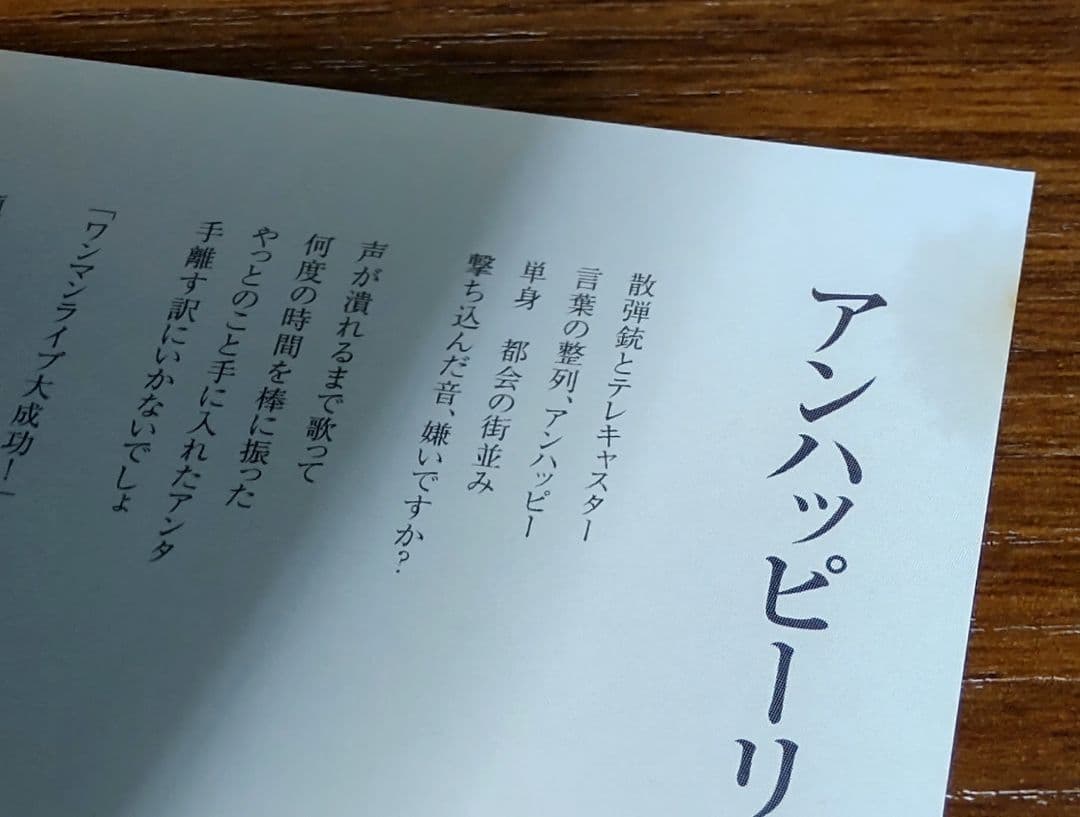 アンハッピーリ
散弾銃とテレキャスター
言葉の整列、アンハッピー
単身　都会の街並み
撃ち込んだ音、嫌いですか？
声が潰れるまで歌って
何度の時間を棒に振った
やっとのこと手に入れたアンタ
手離す訳にいかないでしょ
「ワンマンライブ大成功！」